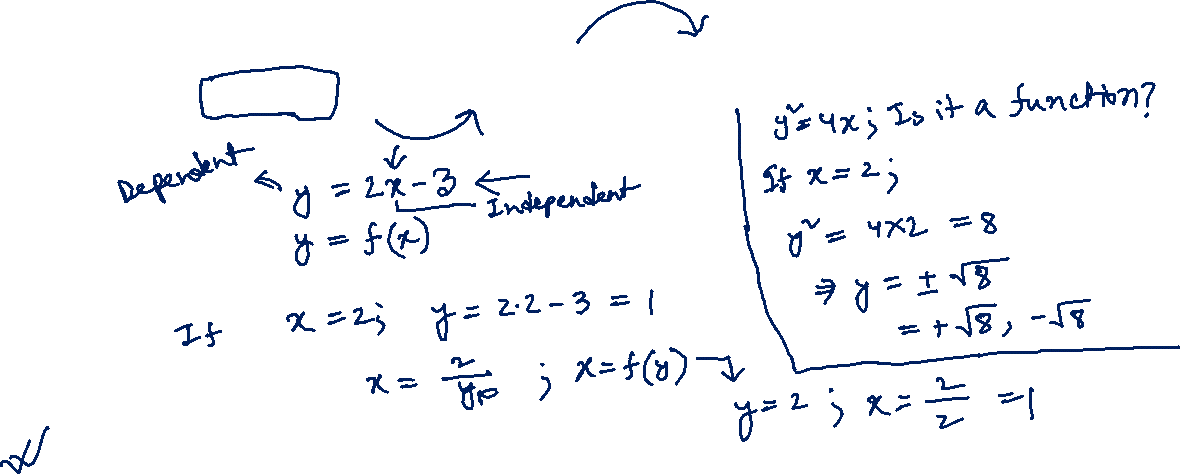 Dependent
y = 2x - 3
Independent
y = f(x)
If x = 2; y = 2·2 - 3 = 1
x = 2/y ; x = f(y)
y = 2 ; x = 2/2 = 1
y² = 4x; Is it a function?
If x = 2;
y² = 4×2 = 8
⇒ y = ± √8
= + √8, -√8